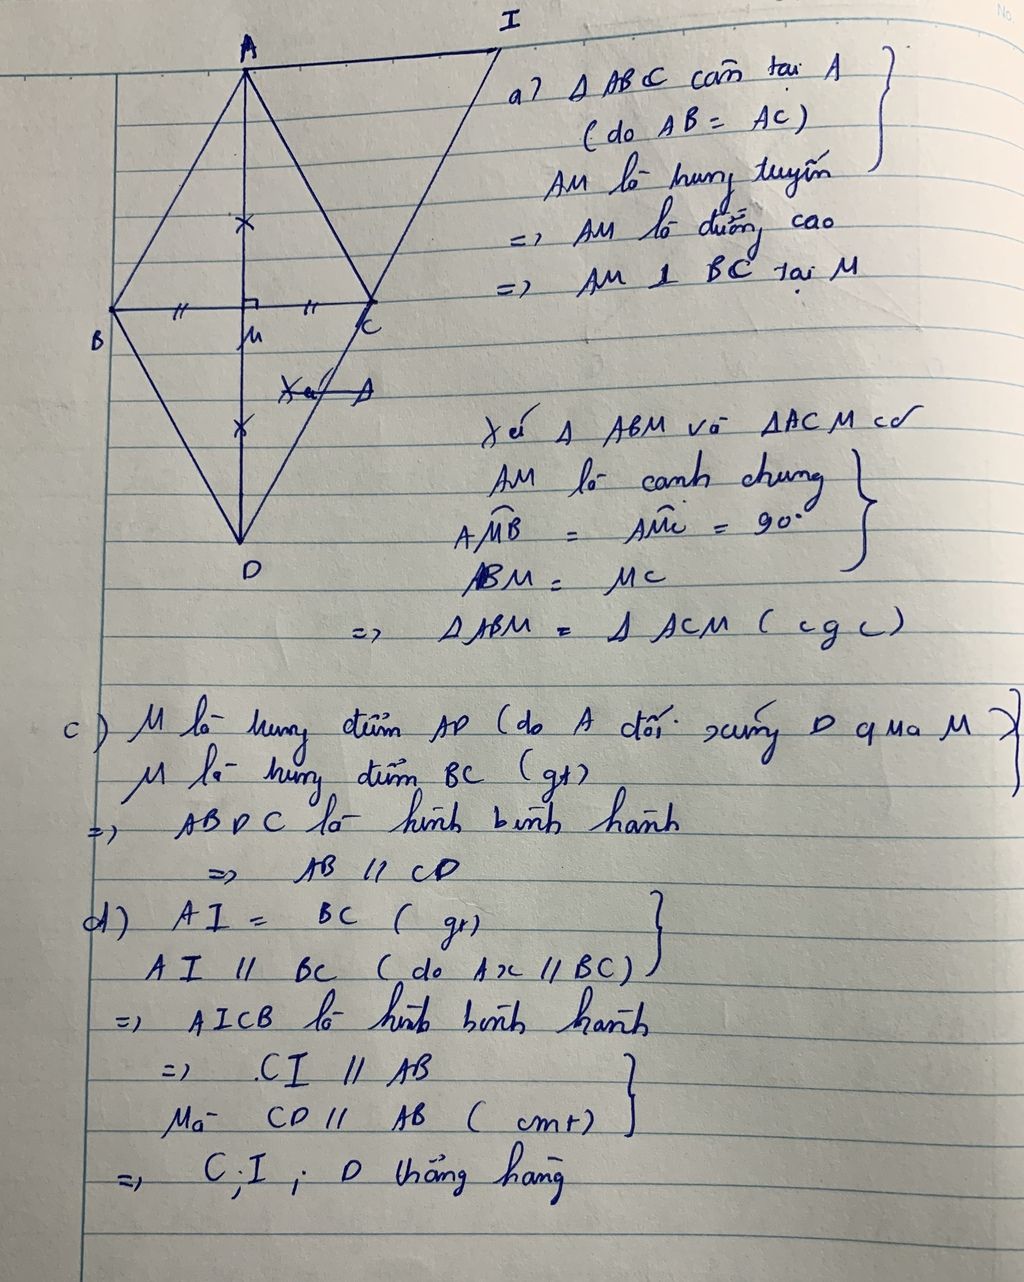 I
A
B
M
C
D
a) Δ ABC cân tại A
(do AB = AC)
AM là trung tuyến
=> AM là đường cao
=> AM ⊥ BC tại M
Xét Δ
Xét Δ ABM và ΔACM có
AM là cạnh chung
AMB = AMC = 90°
BM = MC
=> ΔABM = Δ ACM (cgc)
c) M là trung điểm AD (do A đối xứng D qua M)
M là trung điểm BC (gt)
=> ABDC là hình bình hành
=> AB // CD
d) AI = BC (gt)
AI // BC (do Ax // BC)
=> AICB là hình bình hành
=> CI // AB
Mà CD // AB (cmt)
=> C; I; D thẳng hàng